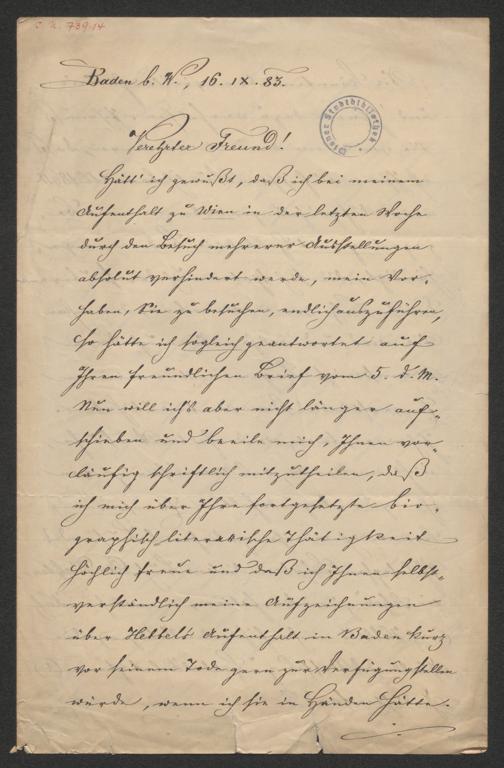 J. N. 739.14
Baden b. W., 16. IX. 83.
Wiener Stadtbibliothek
Verehrter Freund!
Hätt' ich gewußt, daß ich bei meinem
Aufenthalt zu Wien in der letzten Woche
durch den Besuch mehrerer Ausstellungen
absolut verhindert werde, mein Vor-
haben, Sie zu besuchen, endlich auszuführen,
so hätte ich sogleich geantwortet auf
Ihren freundlichen Brief vom 5. d. M.
Nun will ich's aber nicht länger auf-
schieben und beeile mich, Ihnen vor-
läufig schriftlich mitzutheilen, daß
ich mich über Ihre fortgesetzte bio-
graphisch literarische Thätigkeit
höchlich freue und daß ich Ihnen selbst-
verständlich meine Aufzeichnungen
über Hebbels Aufenthalt in Baden kurz
vor seinem Tode gern zur Verfügung stellen
würde, wenn ich sie in Händen hätte.